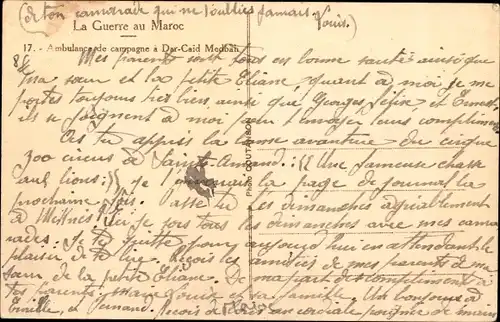 (et ton camarade qui ne t'oublies jamais. Louis.)
La Guerre au Maroc
17. - Ambulance de campagne à Dar-Caid Medbah
Mes parents sont tous en bonne santé ainsi que
ma sœur et la petite Eliane quant à moi je me
portes toujours très bien, ainsi que Georges, et Ernest
ils se joignent à moi pour t'envoyer leurs compliments
As tu appris la bonne aventure du cirque
zoo circus à Saint-Amand: (Une fameuse chasse
aux lions:) je t'envoyais la page de journal la
prochaine fois. Passe tu les dimanches agréablement
à je sors tous les dimanches avec mes cama
rades. Je te quitte pour aujourd'hui en attendant le
plaisir de te lire. Reçois les amitiés de mes parents de ma
sœur, de la petite Eliane. De ma part des compliments à
tes parents, Louis et sa famille. Un bonjour à
Emile, et Fernand. Reçois de une cordiale poignée de mains
Photo COUTANSON